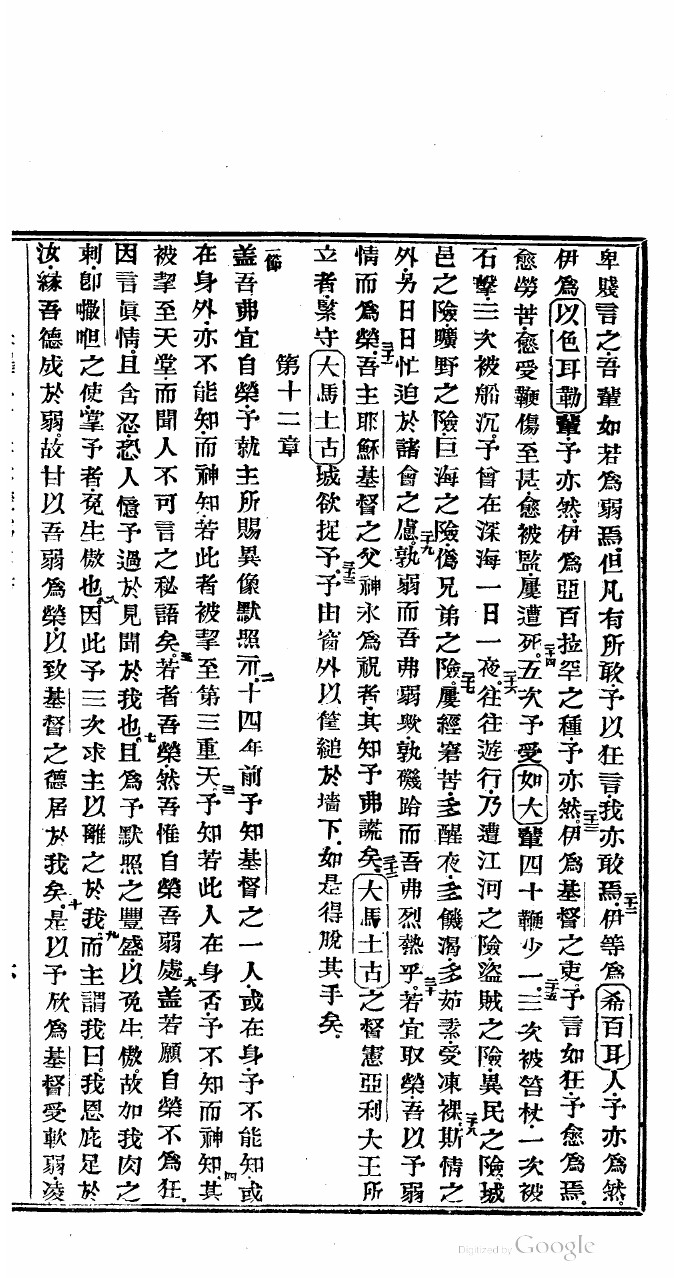 卑賤言之。吾輩如若爲弱焉。但凡有所敢予以狂言。我亦敢焉。二十二伊等爲希百耳人。予亦爲然。
伊爲以色耳勒輩。予亦然。伊爲亞百拉罕之種予亦然。二十三伊爲基督之吏。予言如狂。予愈爲焉。
愈勞苦。愈受鞭傷至甚。愈被監。屢遭死。二十四五次予受如大輩四十鞭少一。二十五三次被笞杖。一次被
石擊。三次被船沉。予曾在深海一日一夜。二十六往往遊行。乃遭江河之險。盜賊之險。異民之險。城
邑之險。曠野之險。巨海之險。僞兄弟之險。二十七屢經窘苦。多醒夜。多饑渴。多茹素。受凍裸。二十八斯情之
外。另日日忙迫於諸會之慮。二十九孰弱而吾弗弱歟。孰磯跲而吾弗烈熱乎。三十若宜取榮。吾以予弱
情而爲榮。三十一吾主耶穌基督之父神永爲祝者。其知予弗謊矣。三十二大馬士古之督憲亞利大王所
立者。棸守大馬士古城欲捉予。三十三予由窗外以筐縋於墻下。如是得脫其手矣。
第十二章
一節蓋吾弗宜自榮。予就主所賜異像默照示。二十四年前予知基督之一人。或在身。予不能知。或
在身外。亦不能知。而神知。若此者被挈至第三重天。三予知若此人在身否。予不知而神知。四其
被挈至天堂。而聞人不可言之秘語矣。五若者吾榮然吾惟自榮吾弱處。六蓋若願自榮不爲狂。
因言眞情。且舍忍。恐人憶予過於見聞於我也。七且爲予默照之豐盛。以免生傲。故加我肉之
刺。卽撒但之使。掌予者免生傲也。八因此予三次求主以離之於我。九而主謂我曰。我恩庇足於
汝。緣吾德成於弱。故甘以吾弱爲榮。以致基督之德居於我矣。十是以予欣爲基督受軟弱凌